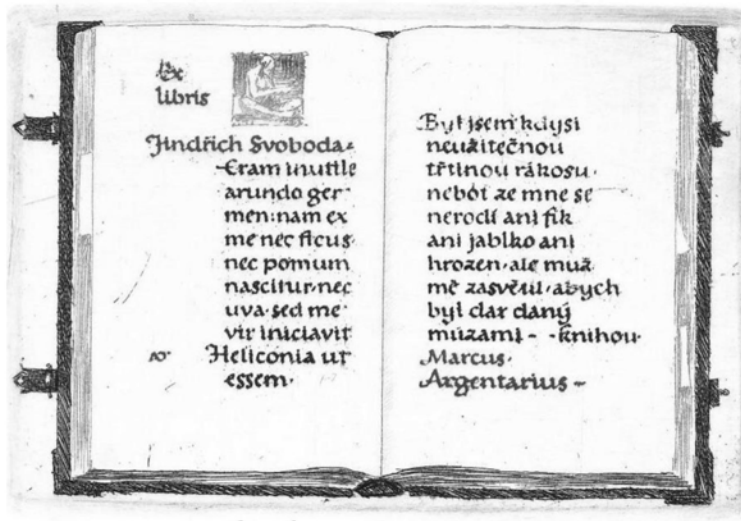 Ex
libris
Jindřich Svoboda
Eram inutile
arundo ger
men: nam ex
me nec ficus
nec pomum
nascitur· nec
uva· sed me
vir iniciavit
Heliconia ut
essem·
Byl jsem kdysi
neužitečnou
třtinou rákosu·
nebót ze mne se
nerodí ani fík
ani jablko ani
hrozen· ale muž
mě zasvětil· abych
byl dar daný
múzami - - knihou·
Marcus·
Argentarius -